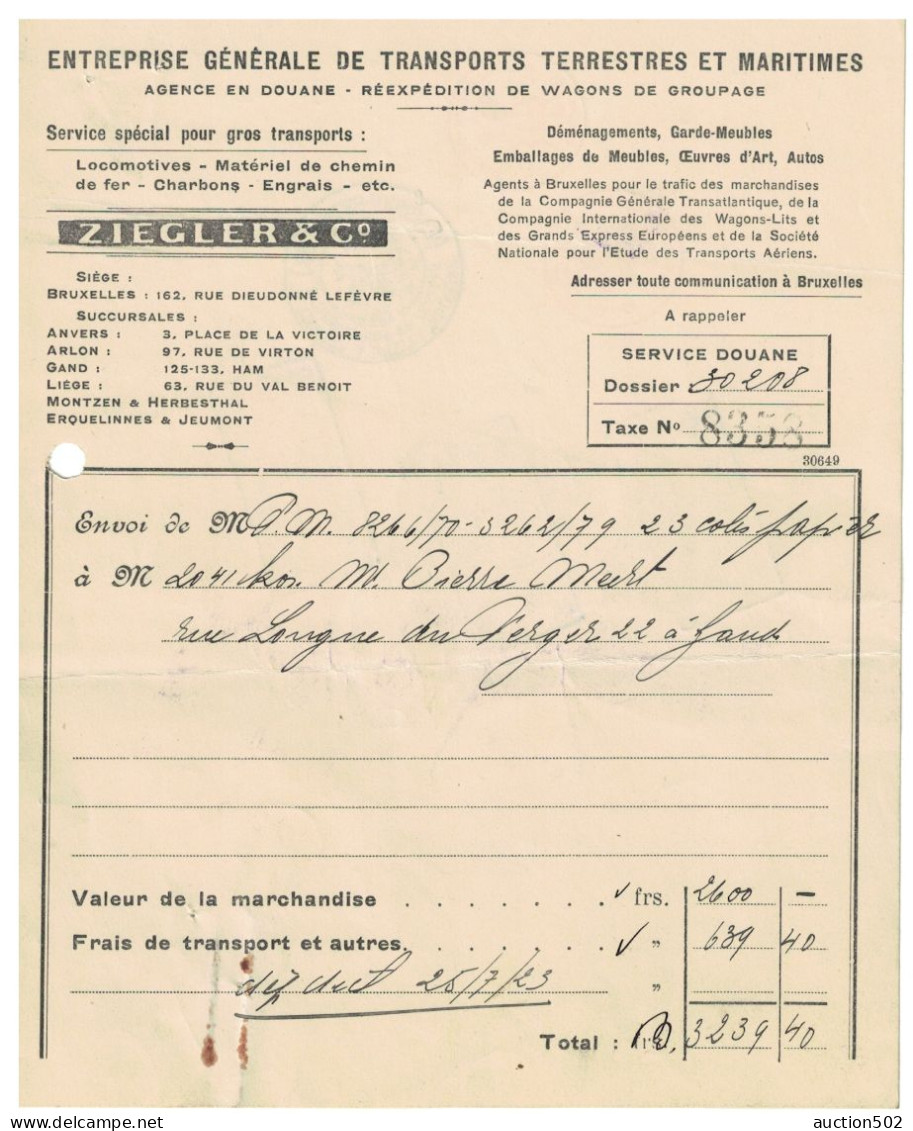 ENTREPRISE GÉNÉRALE DE TRANSPORTS TERRESTRES ET MARITIMES
AGENCE EN DOUANE - RÉEXPÉDITION DE WAGONS DE GROUPAGE
Service spécial pour gros transports :
Locomotives - Matériel de chemin
de fer - Charbons - Engrais - etc.
ZIEGLER & Cº
SIÈGE :
BRUXELLES : 162, RUE DIEUDONNÉ LEFÈVRE
SUCCURSALES :
ANVERS : 3, PLACE DE LA VICTOIRE
ARLON : 97, RUE DE VIRTON
GAND : 125-133, HAM
LIÉGE : 63, RUE DU VAL BENOIT
MONTZEN & HERBESTHAL
ERQUELINNES & JEUMONT
Déménagements, Garde-Meubles
Emballages de Meubles, Œuvres d'Art, Autos
Agents à Bruxelles pour le trafic des marchandises
de la Compagnie Générale Transatlantique, de la
Compagnie Internationale des Wagons-Lits et
des Grands Express Européens et de la Société
Nationale pour l'Etude des Transports Aériens.
Adresser toute communication à Bruxelles
A rappeler
SERVICE DOUANE
Dossier 30208
Taxe Nº 8358
30649
Envoi de M P.M. 8266/70-3262/79 23 colis papier
à M 2041 kos M. Pierre Meert
rue Longue du Verger 22 à Gand
Valeur de la marchandise frs. 2600 —
Frais de transport et autres. " 639 40
25/7/23 "
Total : frs. 3239 40
auction502